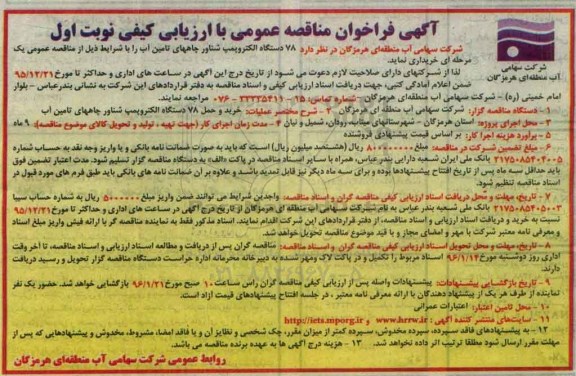 آگهی فراخوان مناقصه عمومی با ارزیابی کیفی نوبت اول
شرکت سهامی
آب منطقه‌ای هرمزگان
شرکت سهامی آب منطقه‌ای هرمزگان در نظر دارد ۷۸ دستگاه الکتروپمپ شناور چاههای تامین آب را با شرایط ذیل از مناقصه عمومی یک
مرحله ای خریداری نماید.
لذا از شرکتهای دارای صلاحیت لازم دعوت می شود از تاریخ درج این آگهی در ساعت های اداری و حداکثر تا مورخ ۹۵/۱۲/۲۱
ضمن اعلام آمادگی کتبی، جهت دریافت اسناد ارزیابی کیفی و اسناد مناقصه به دفتر قراردادهای این شرکت به نشانی بندرعباس - بلوار
امام خمینی (ره) - شرکت سهامی آب منطقه‌ای هرمزگان - شماره تماس: ۱۵ - ۳۳۳۳۵۴۱۱ - ۰۷۶ مراجعه نمایند.
۱ - دستگاه مناقصه گزار: شرکت سهامی آب منطقه ای هرمزگان ۲ - شرح مختصر عملیات: خرید و حمل ۷۸ دستگاه الکتروپمپ شناور چاههای تامین آب
۳ - محل اجرای پروژه: استان هرمزگان - شهرستانهای میناب، رودان، شمیل و نیان ۴ - مدت زمان اجرای کار (جهت تهیه، تولید و تحویل کالای موضوع مناقصه): ۹ ماه
۵ - برآورد هزینه اجرا کار: بر اساس قیمت پیشنهادی فروشنده
۶ - مبلغ تضمین شرکت در مناقصه: ۸۰۰۰۰۰۰۰۰ ریال (هشتصد میلیون ریال) است که باید به صورت ضمانت نامه بانکی و یا واریز وجه نقد به حساب شماره
۲۱۷۵۰۸۵۴۰۴۰۰۵ بانک ملی ایران شعبه دارایی بندرعباس، همراه با سایر اسناد مناقصه در پاکت «الف» به دستگاه مناقصه گزار تسلیم شود. مدت اعتبار تضمین فوق
باید حداقل سه ماه پس از تاریخ افتتاح پیشنهادها بوده و برای سه ماه دیگر نیز قابل تمدید باشد و علاوه بر آن ضمانت نامه های بانکی باید طبق فرم های مورد قبول در
اسناد مناقصه تنظیم شود.
۷ - تاریخ، مهلت و محل دریافت اسناد ارزیابی کیفی مناقصه گران و اسناد مناقصه: واجدین شرایط می توانند ضمن واریز مبلغ ۵۰۰۰۰۰ ریال به شماره حساب سیبا
۲۱۷۵۰۸۵۴۰۵۰۰۲ بانک ملی شعبه بندر عباس به نام شرکت سهامی آب منطقه ای هرمزگان از تاریخ درج آگهی در ساعت های اداری و حداکثر تا مورخ ۹۵/۱۲/۲۱
نسبت به خرید و دریافت اسناد ارزیابی و اسناد مناقصه، از دفتر قراردادهای این شرکت اقدام نمایند. اسناد مذکور فقط به نماینده مناقصه گر با ارائه فیش واریز مبلغ اسناد
و معرفی نامه معتبر شرکت با مهر و امضای مجاز و با قید موضوع مناقصه تحویل خواهد شد.
۸ - تاریخ، مهلت و محل تحویل اسناد ارزیابی کیفی مناقصه گران و اسناد مناقصه: مناقصه گران پس از دریافت و مطالعه اسناد ارزیابی و اسناد مناقصه، تا آخر وقت
اداری روز دوشنبه مورخ ۹۶/۱/۱۴ اسناد مربوط را تکمیل و در پاکت لاک ومهر شده به دبیرخانه محرمانه اداره حراست دستگاه مناقصه گزار تحویل و رسید دریافت
دارند.
۹ - تاریخ بازگشایی پیشنهادات: پیشنهادات واصله پس از ارزیابی کیفی مناقصه گران راس ساعت ۱۰ صبح مورخ ۹۶/۱/۲۱ بازگشایی خواهد شد. حضور یک نفر
نماینده از طرف هر یک از پیشنهاد دهندگان با ارائه معرفی نامه معتبر، در جلسه افتتاح پیشنهادهای قیمت آزاد است.
۱۰ - محل تامین اعتبار: اعتبارات عمرانی
۱۱ - سایت‌های منتشر کننده آگهی: www.hrrw.ir و http://iets.mporg.ir
۱۲ - به پیشنهادهای فاقد سپرده، سپرده مخدوش، سپرده کمتر از میزان مقرر، چک شخصی و نظایر آن و یا فاقد امضا، مشروط، مخدوش و پیشنهادهایی که پس از
مهلت مقرر ارسال شود مطلقا ترتیب اثر داده نخواهد شد. ۱۳ - هزینه درج آگهی ها به عهده برنده مناقصه می باشد.
روابط عمومی شرکت سهامی آب منطقه‌ای هرمزگان